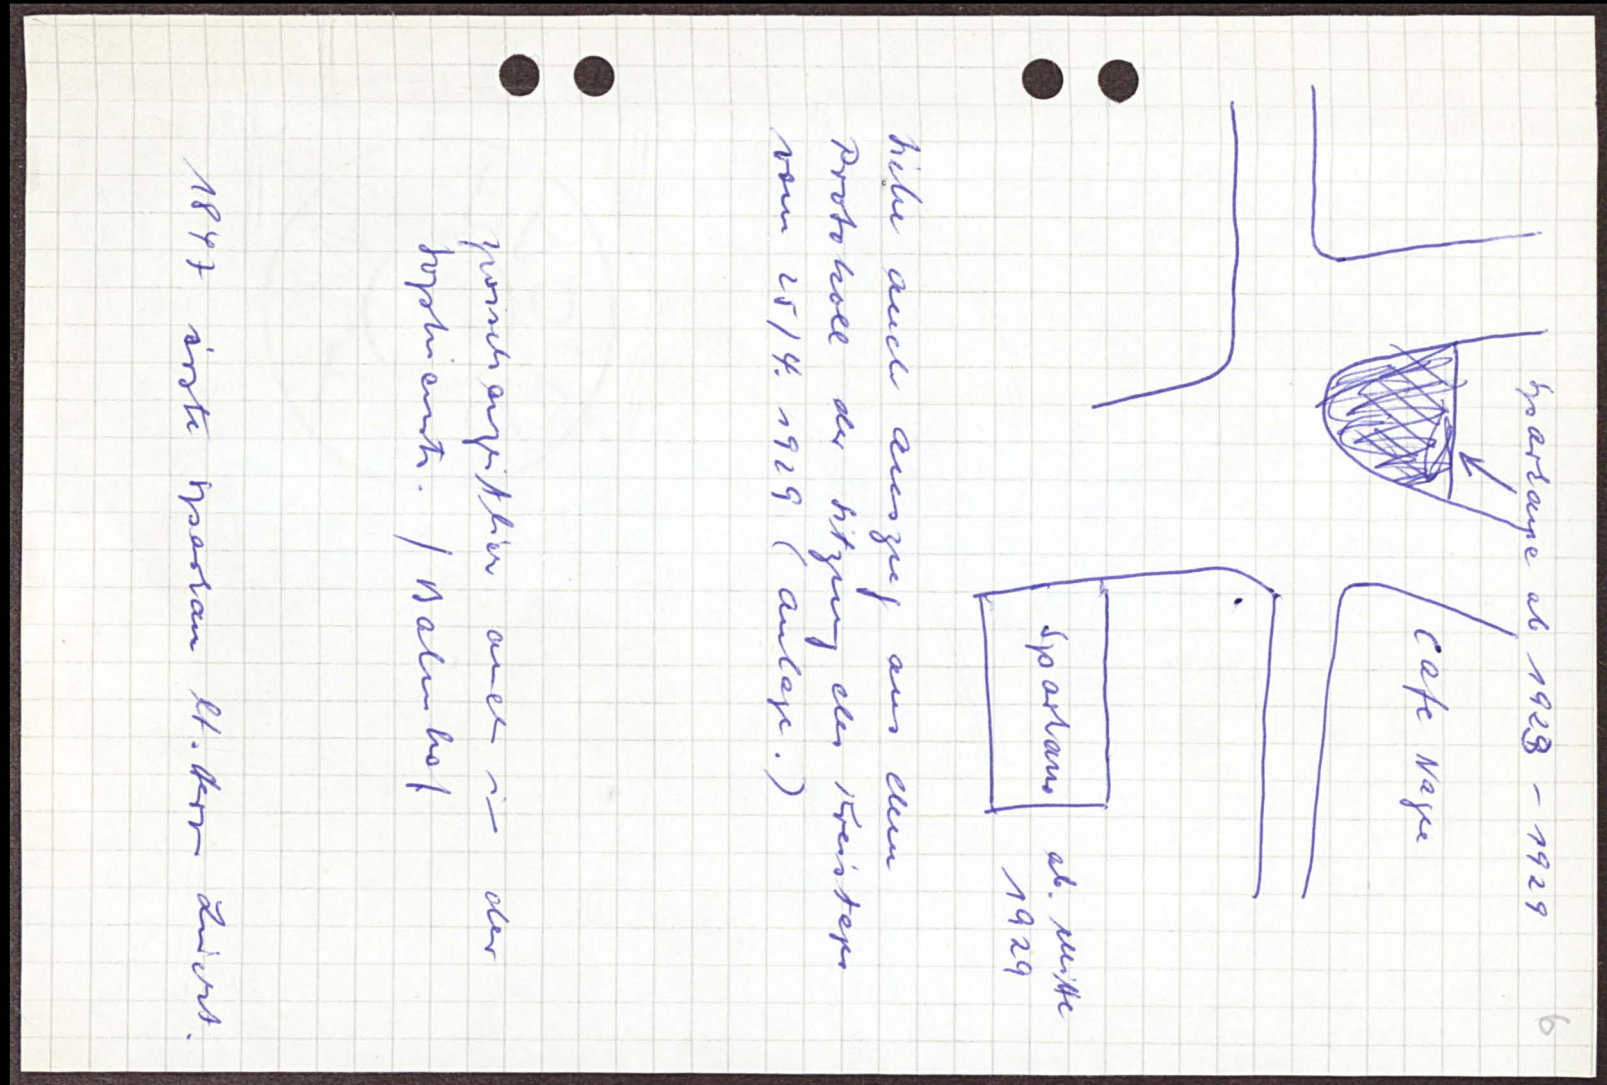 Sparkasse ab 1928 - 1929
Cafe Nagel
Sparkasse
ab. Mitte
1929
Siehe auch Auszug aus dem
Protokoll der Sitzung des Kreistages
vom 25/4. 1929 (Anlage.)
zwischenzeitlich auch in der
Sophienstr. / Bahnhof
1847 erste Sparkasse lt. Herr
6